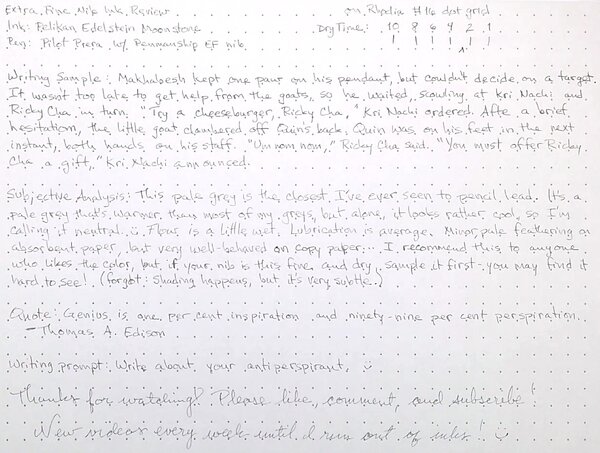 Extra Fine Nib Ink Review on Rhodia #16 dot grid
Ink: Pelikan Edelstein Moonstone Dry Time: 10 8 6 4 2 1
Pen: Pilot Prera w/ Penmanship EF nib 1 1 1 1 1 1
Writing Sample: Makhabesh kept one paw on his pendant, but couldn't decide on a target.
It wasn't too late to get help from the goats, so he waited, scowling at Kri Nachi and
Ricky Cha in turn. "Try a cheeseburger, Ricky Cha," Kri Nachi ordered. After a brief
hesitation, the little goat clambered off Quin's back. Quin was on his feet in the next
instant, both hands on his staff. "Um nom nom," Ricky Cha said. "You must offer Ricky
Cha a gift," Kri Nachi announced.
Subjective Analysis: This pale grey is the closest I've ever seen to pencil lead. It's a
pale grey that's warmer than most of my greys, but alone, it looks rather cool, so I'm
calling it neutral. Flow is a little wet. Lubrication is average. Minor pale feathering on
absorbent paper, but very well-behaved on copy paper... I recommend this to anyone
who likes the color, but if your nib is this fine and dry, sample it first - you may find it
hard to see! (forgot: Shading happens, but it's very subtle.)
Quote: Genius is one per cent inspiration and ninety-nine per cent perspiration.
- Thomas A. Edison
Writing prompt: Write about your antiperspirant. :)
Thanks for watching! Please like, comment, and subscribe!
New videos every week until I run out of inks! :)